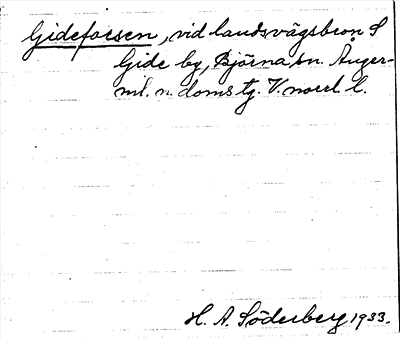 Gideforsen, vid landsvägsbron S
Gide by, Björna sn. Ånger-
ml. n. doms tg. V. norrl. l.
H. A. Söderberg 1933.